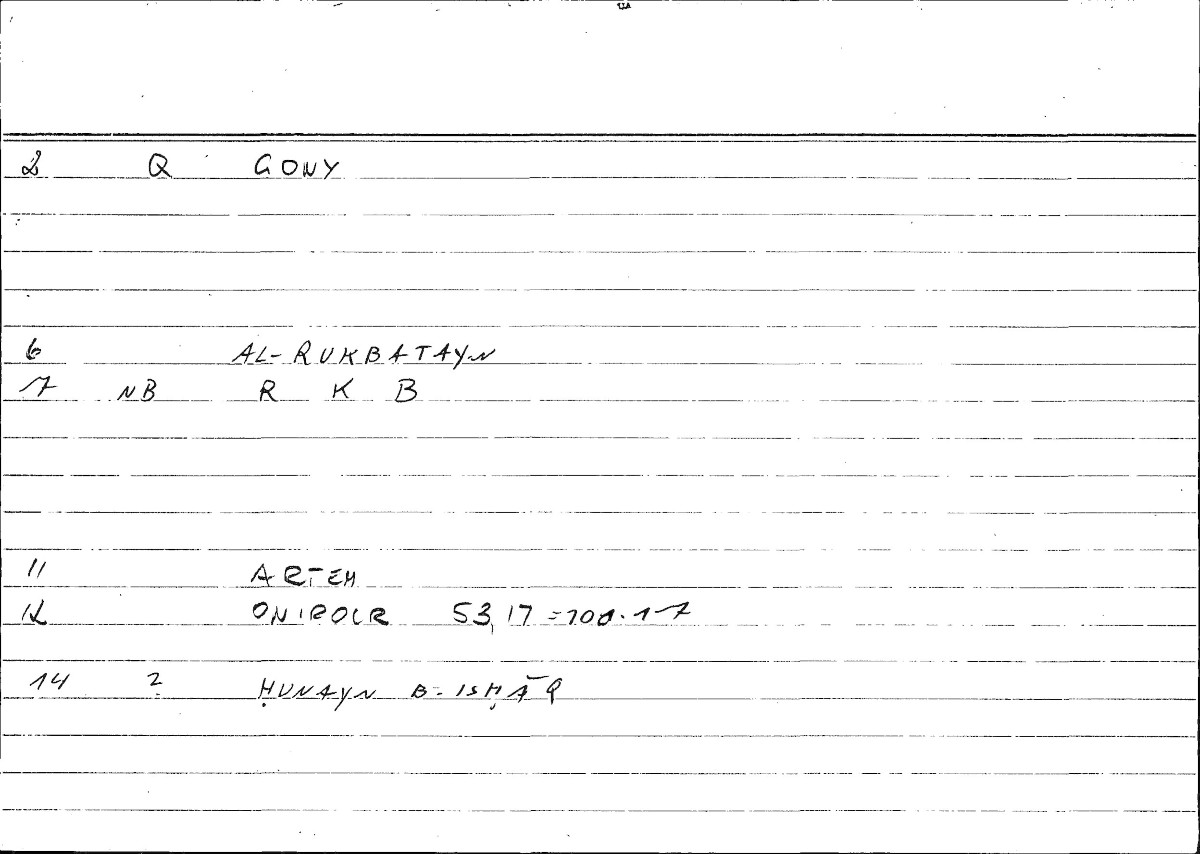 2 Q GONY
6 AL-RUKBATAYN
7 NB R K B
11 ARTEM
12 ONIROCR 53,17=100.1-7
14 2 ḤUNAYN B- ISḤĀQ